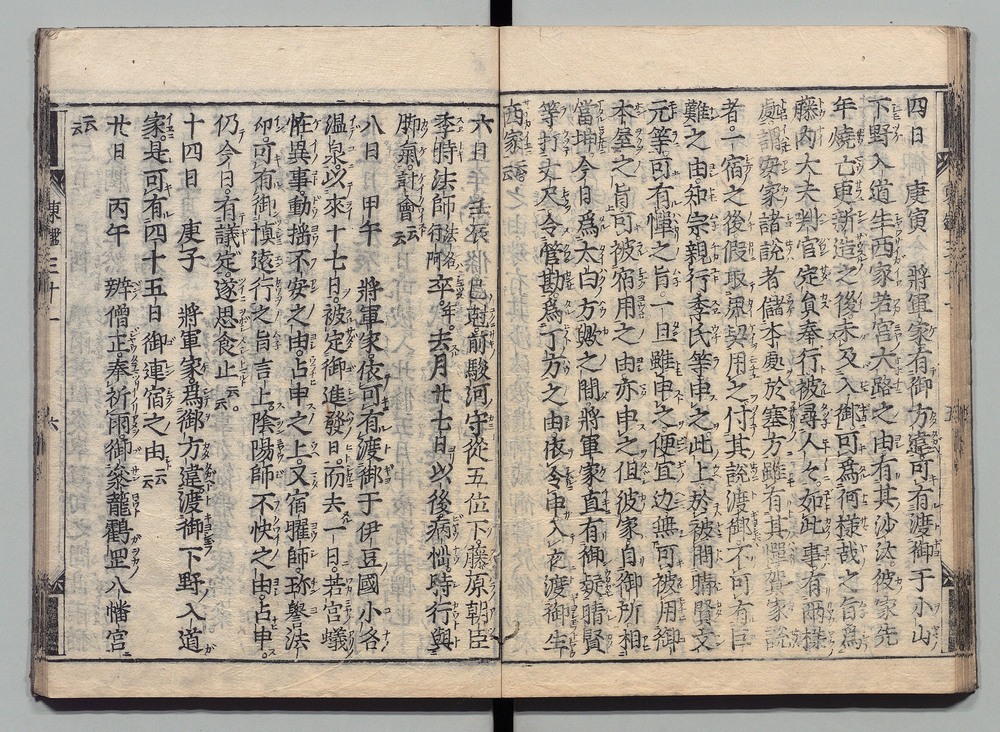 四日 庚寅 將軍家有御方違可有渡御于小山
下野入道生西家若宮大路之由有其沙汰彼家先
年燒亡更新造之後未及入御可爲何樣哉之旨爲
藤内大夫判官定員奉行被尋人々如此事有兩樣
處謂安家諸說者儲本處於塞方雖有其憚賀家說
者一宿之後假取瓶契用之付其說渡御不可有巨
難之由知宗親行季氏等申之此上於被問晴賢文
元等可有憚之旨一旦雖申之便宜边無可被用御
本屋之旨可被宿用之由亦申之但彼家自御所相
當坤今日爲太白方歟之間將軍家直有御疑晴賢
等打丈尺令管勘爲丁方之由依令申入夜渡御生
西家云云
六日 壬辰 前駿河守從五位下藤原朝臣
季時法師法名行阿卒年 去月廿七日以後病惱時行與
脚氣計會云云
八日 甲午 將軍家依可有渡御于伊豆國小名
温泉以來十七日被定御進發日而去一日若宮蟻
恠異事動搖不安之由占申之上又宿曜師珎譽法
印可有御愼遠行之旨言上陰陽師不快之由占申
仍今日有議定遂思食止云云
十四日 庚子 將軍家爲御方違渡御下野入道
家是可有四十五日御連宿之由云云
廿日 丙午 辨僧正奉祈雨御祭龍鸖罡八幡宮
云云
東鑑三十一 六